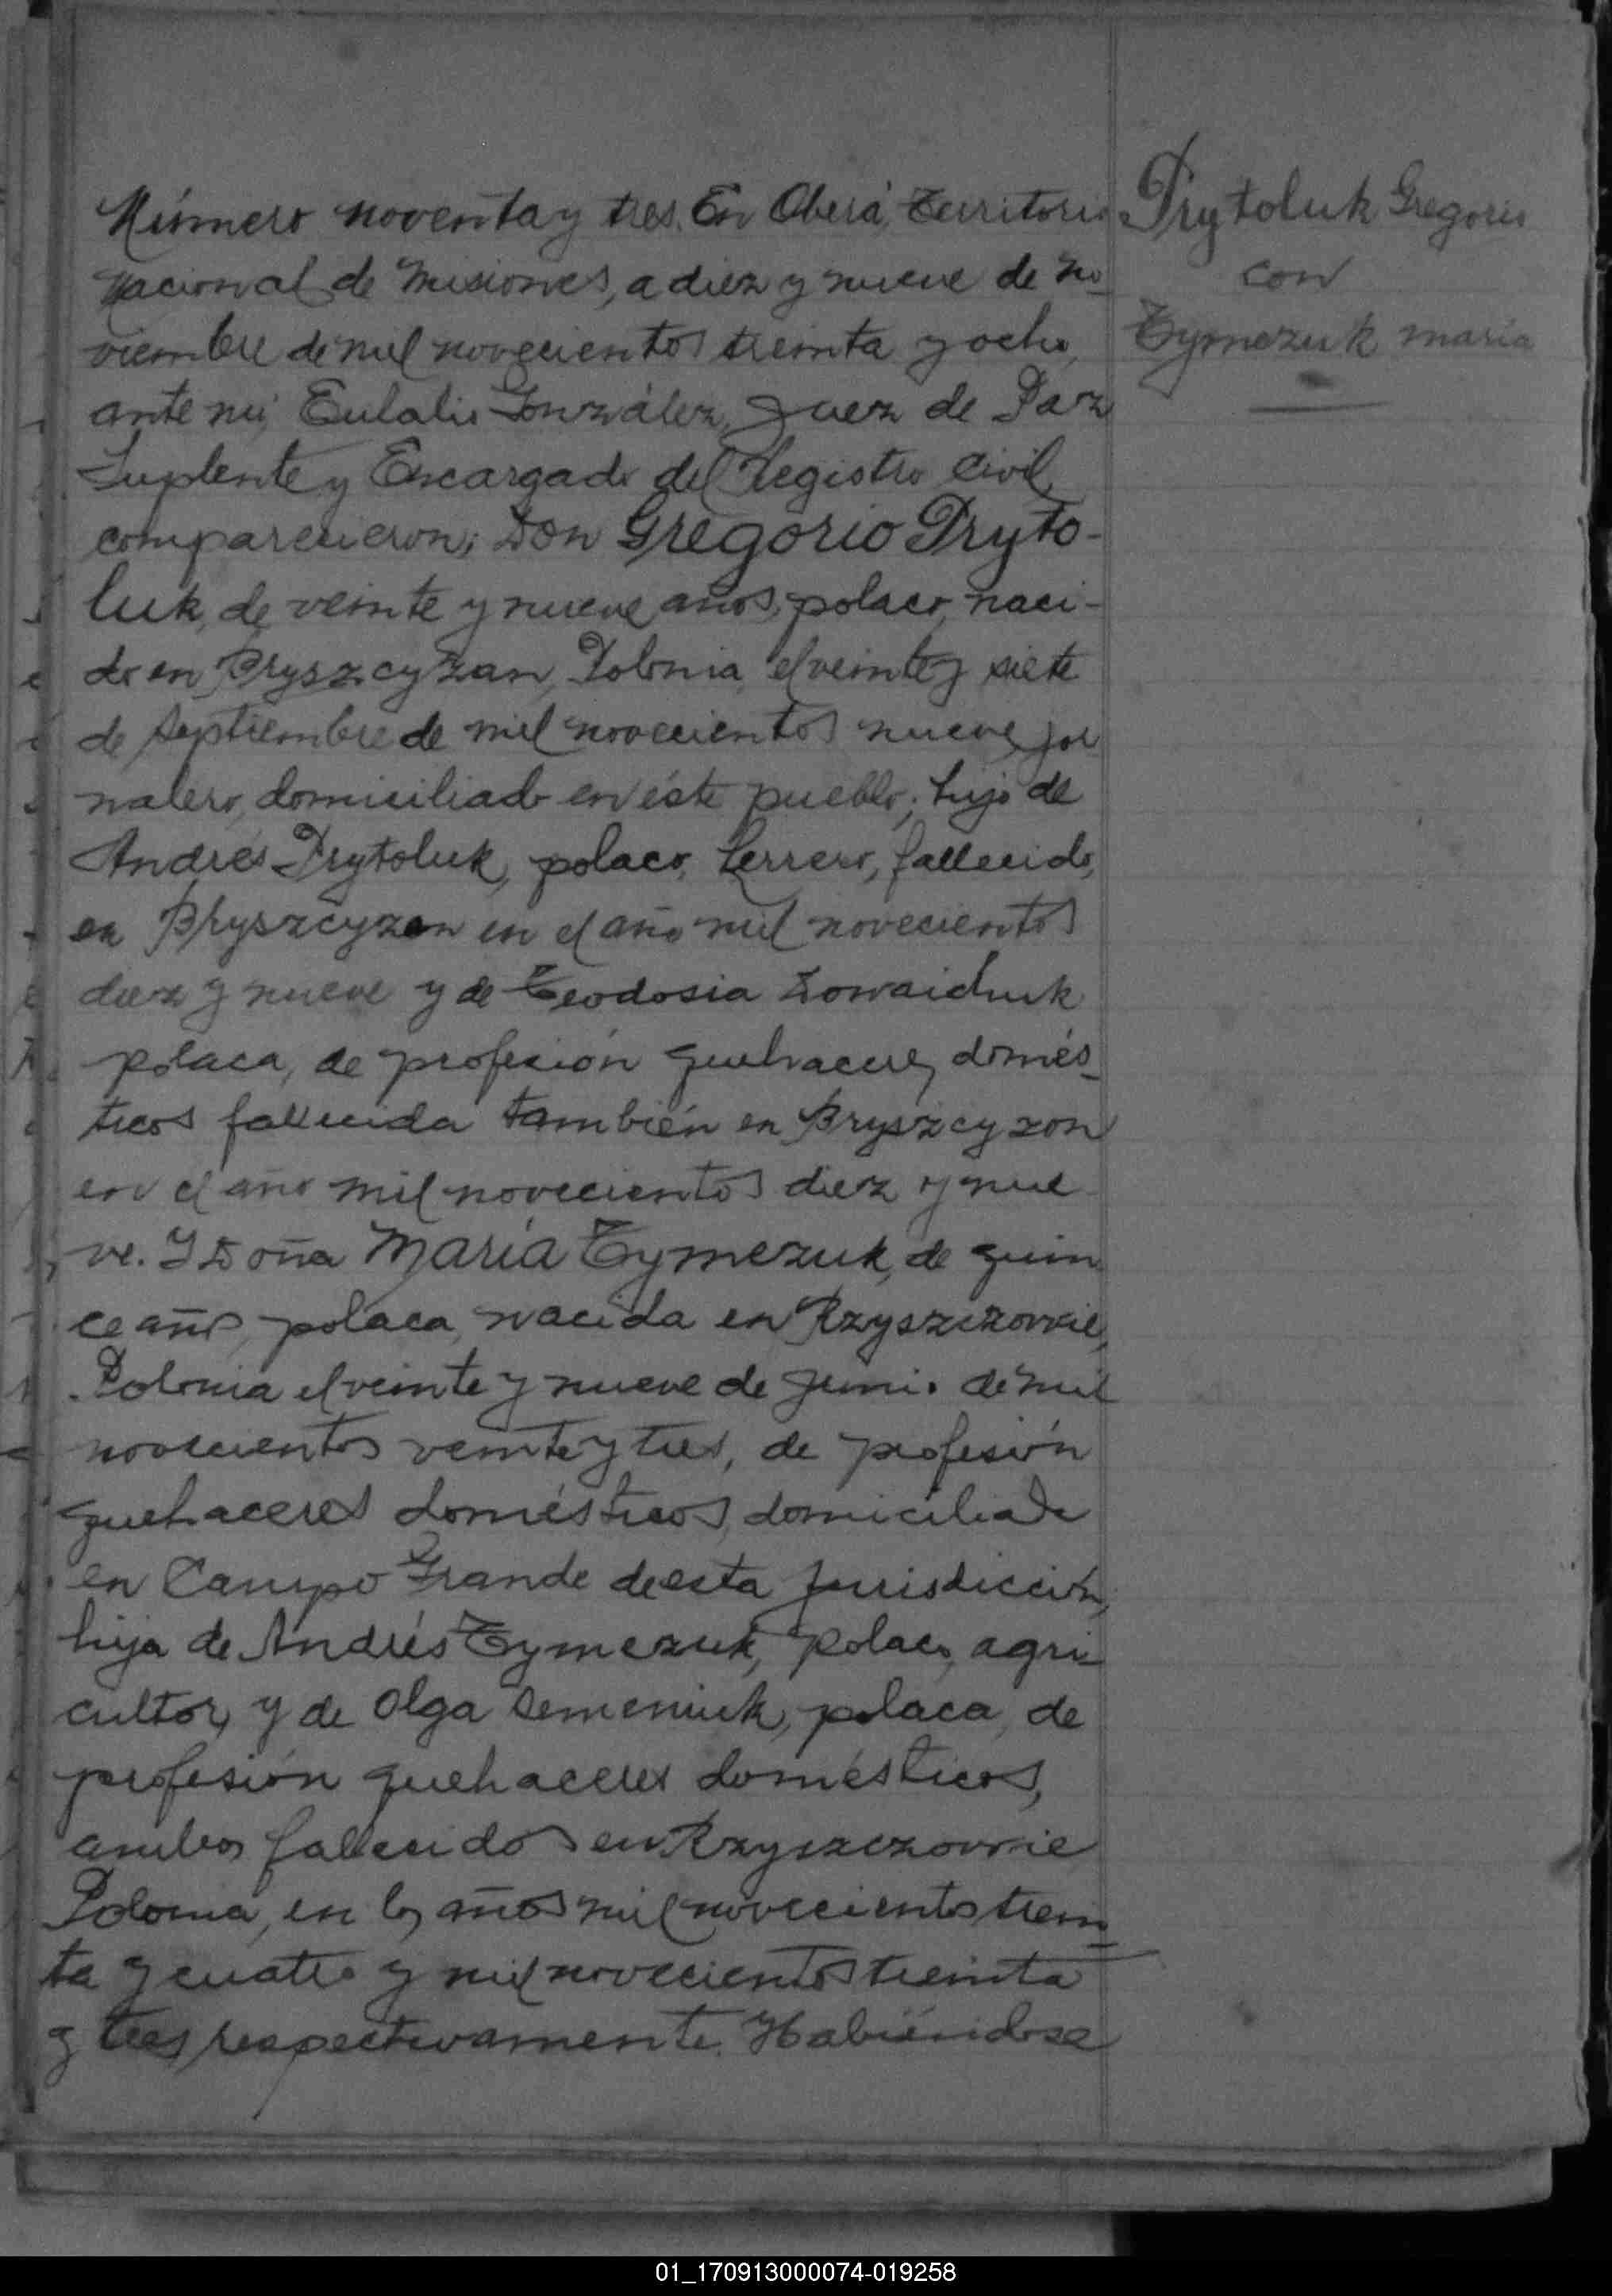 Número noventa y tres. En Oberá, Territorio
Nacional de Misiones, a diez y nueve de no-
viembre de mil novecientos treinta y ocho,
ante mí, Eulalio González, Juez de Paz
Suplente y Encargado del Registro Civil,
comparecieron; Don Gregorio Pryto-
luk, de veinte y nueve años, polaco, naci-
do en Bryszcyzan, Polonia, el veinte y siete
de septiembre de mil novecientos nueve, jor
nalero, domiciliado en éste pueblo; hijo de
Andrés Prytoluk, polaco, herrero, fallecido,
en Bryszcyzon en el año mil novecientos
diez y nueve y de Teodosia Zowaichuk
polaca, de profesión quehaceres domés-
ticos fallecida también en Bryszcyzon
en el año mil novecientos diez y nue
ve. Y Doña María Tymezuk, de quin
ce años, polaca, nacida en Rzyszczowie,
Polonia el veinte y nueve de junio de mil
novecientos veinte y tres, de profesión
quehaceres domésticos, domiciliada
en Campo Grande de esta jurisdicción,
hija de Andrés Tymezuk, polaco, agri-
cultor, y de Olga Semeniuk, polaca, de
profesión quehaceres domésticos,
ambos fallecidos en Rzyszczowie
Polonia, en los años mil novecientos trein-
ta y cuatro y mil novecientos treinta
y tres, respectivamente. Habiéndose
Prytoluk Gregorio
con
Tymezuk maría
01_170913000074-019258